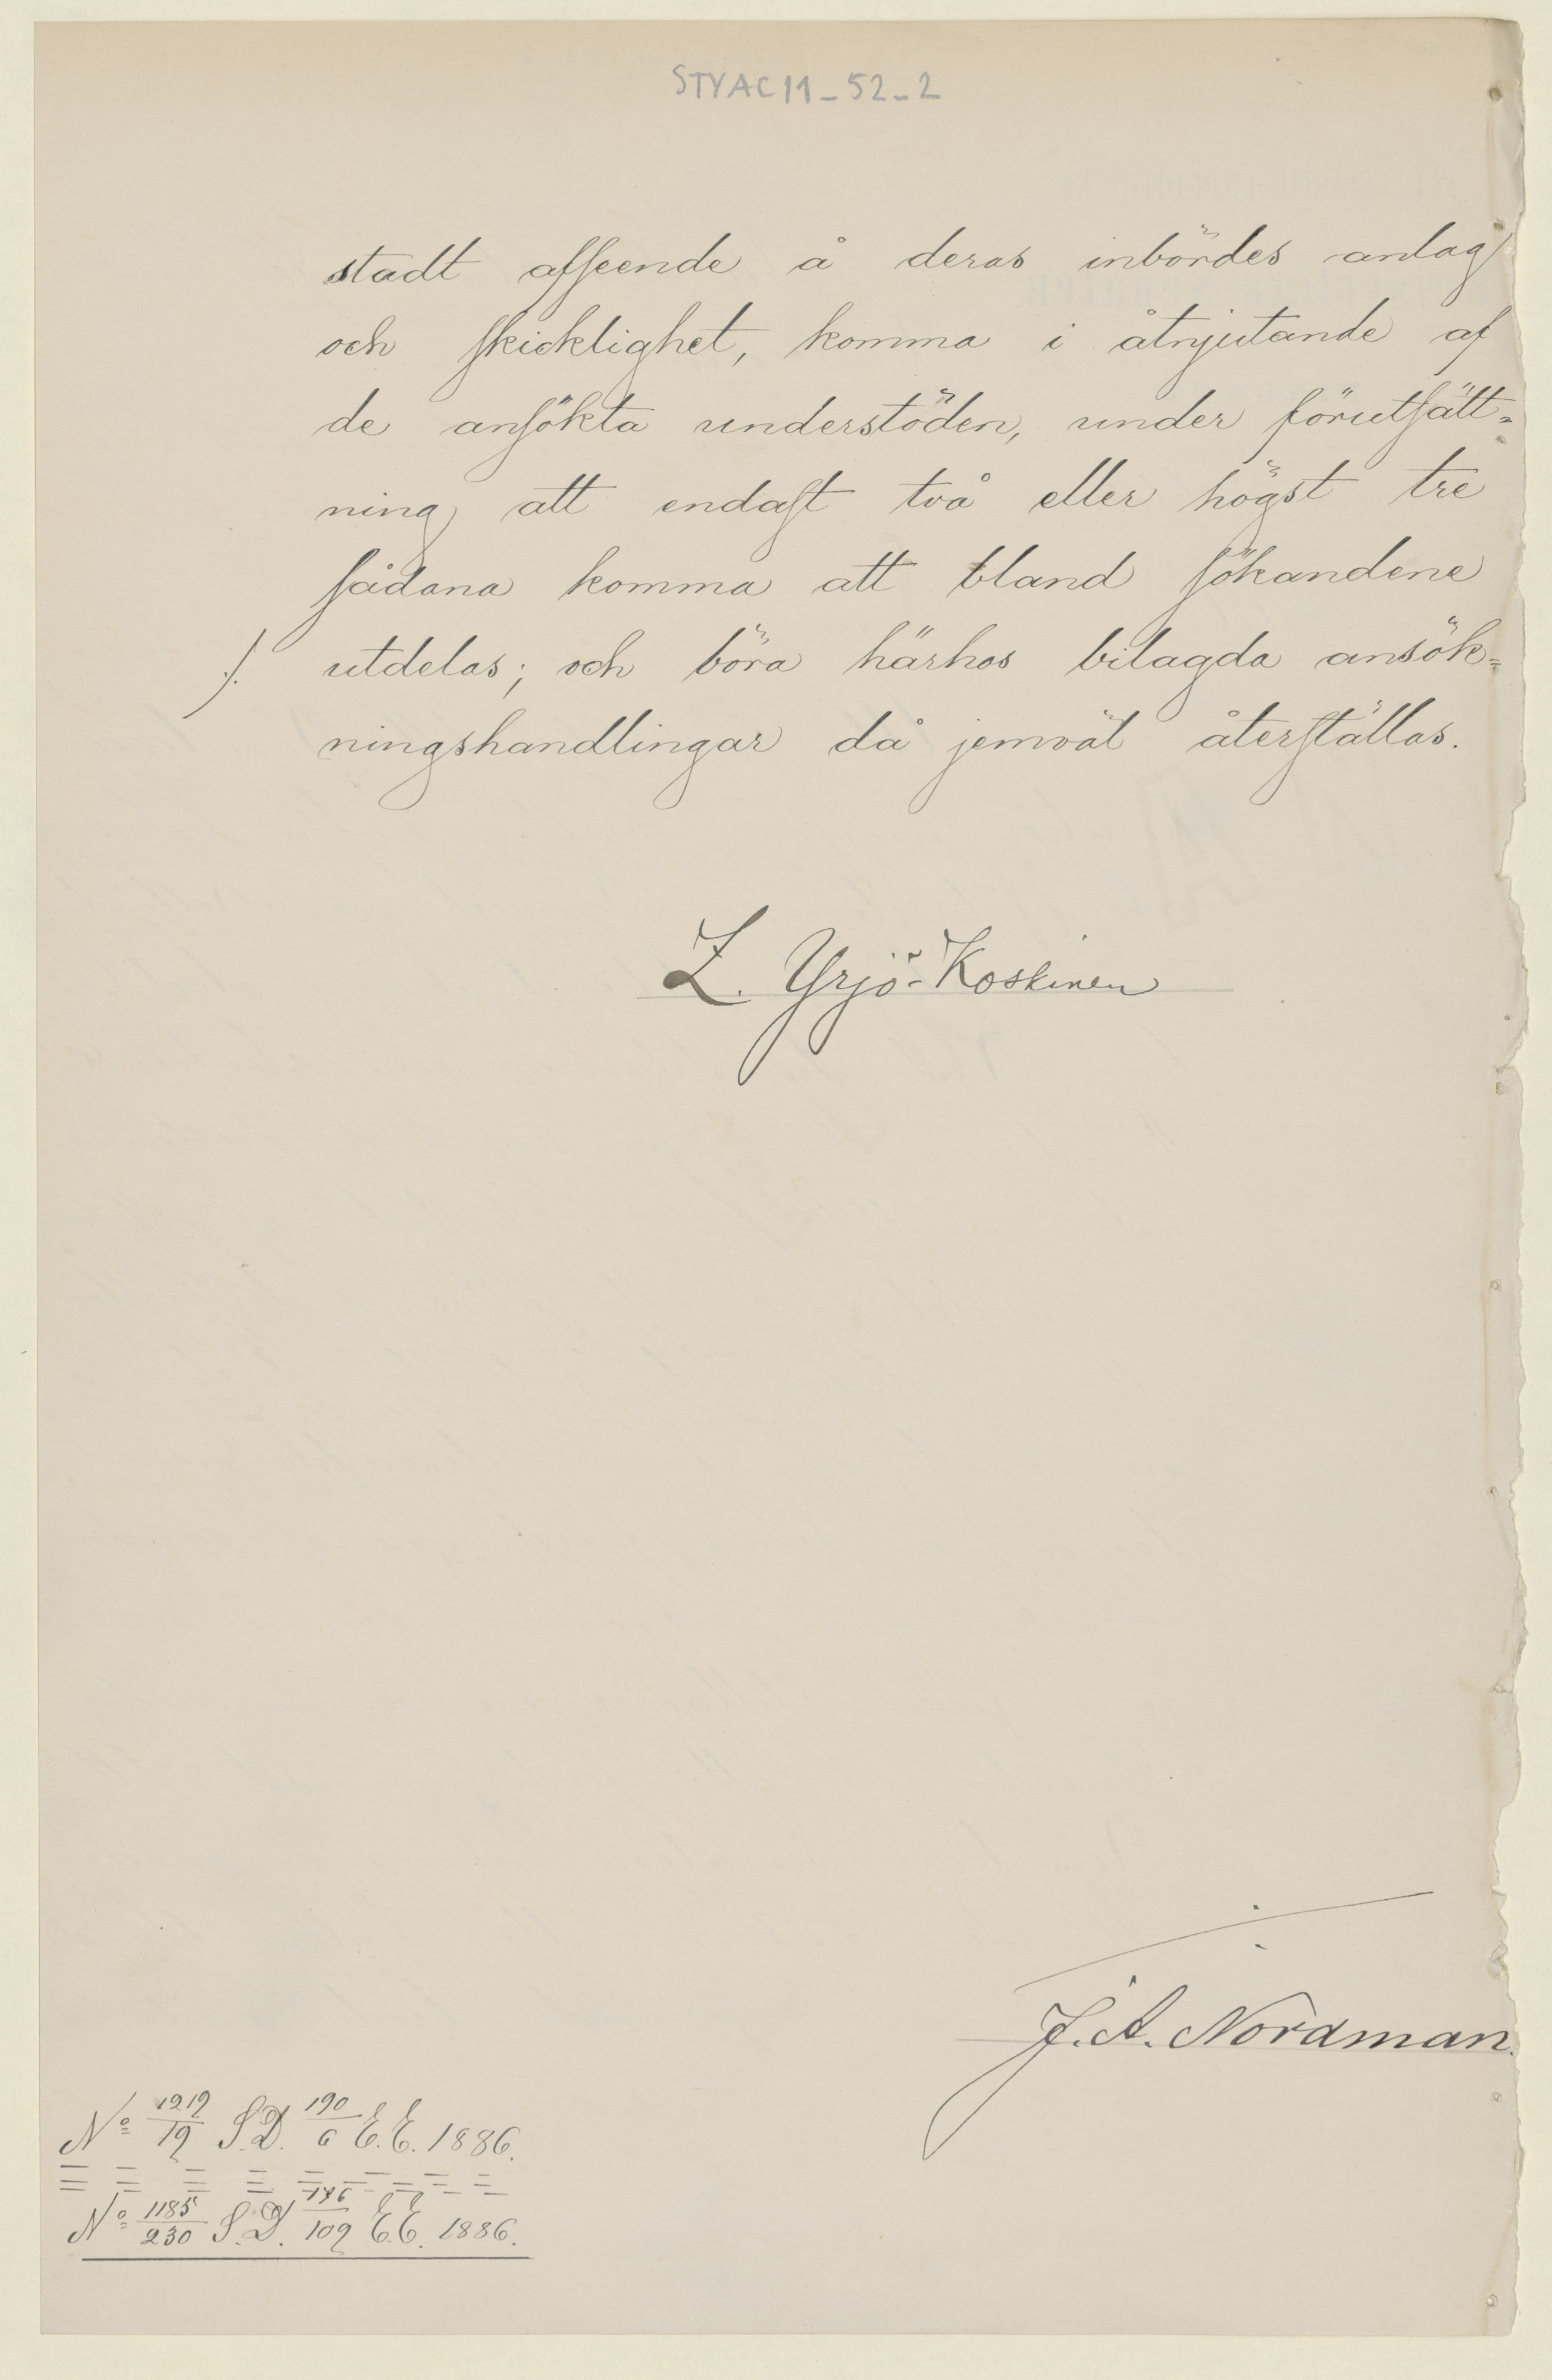 STYAC11-52-2
stadt afseende å deras inbördes anlag
och skicklighet, komma i åtnjutande af
de ansökta understöden, under förutsätt=
ning att endast två eller högst tre
sådana komma att bland sökandene
./. utdelas; och böra härhos bilagda ansök=
ningshandlingar då jemväl återställas.
Z. Yrjö-Koskinen
J. A. Nordman.
No 1219/19 S.D. 190/6 E.E. 1886.
No 1185/230 S.D. 186/109 E.E. 1886.